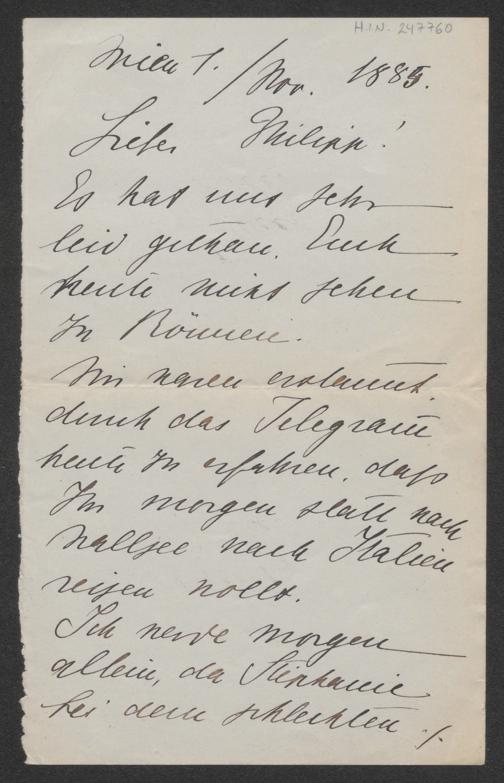 H.I.N. 247760
Wien 1./Nov. 1885.
Lieber Philipp!
Es hat uns sehr
leid gethan, Euch
heute nicht sehen
zu können.
Wir waren erstaunt,
durch das Telegram̄
heute zu erfahren, daß
Ihr morgen statt nach
Wallsee nach Italien
reisen wollt.
Ich werde morgen
allein, da Stephanie
bei dem schlechten ./.